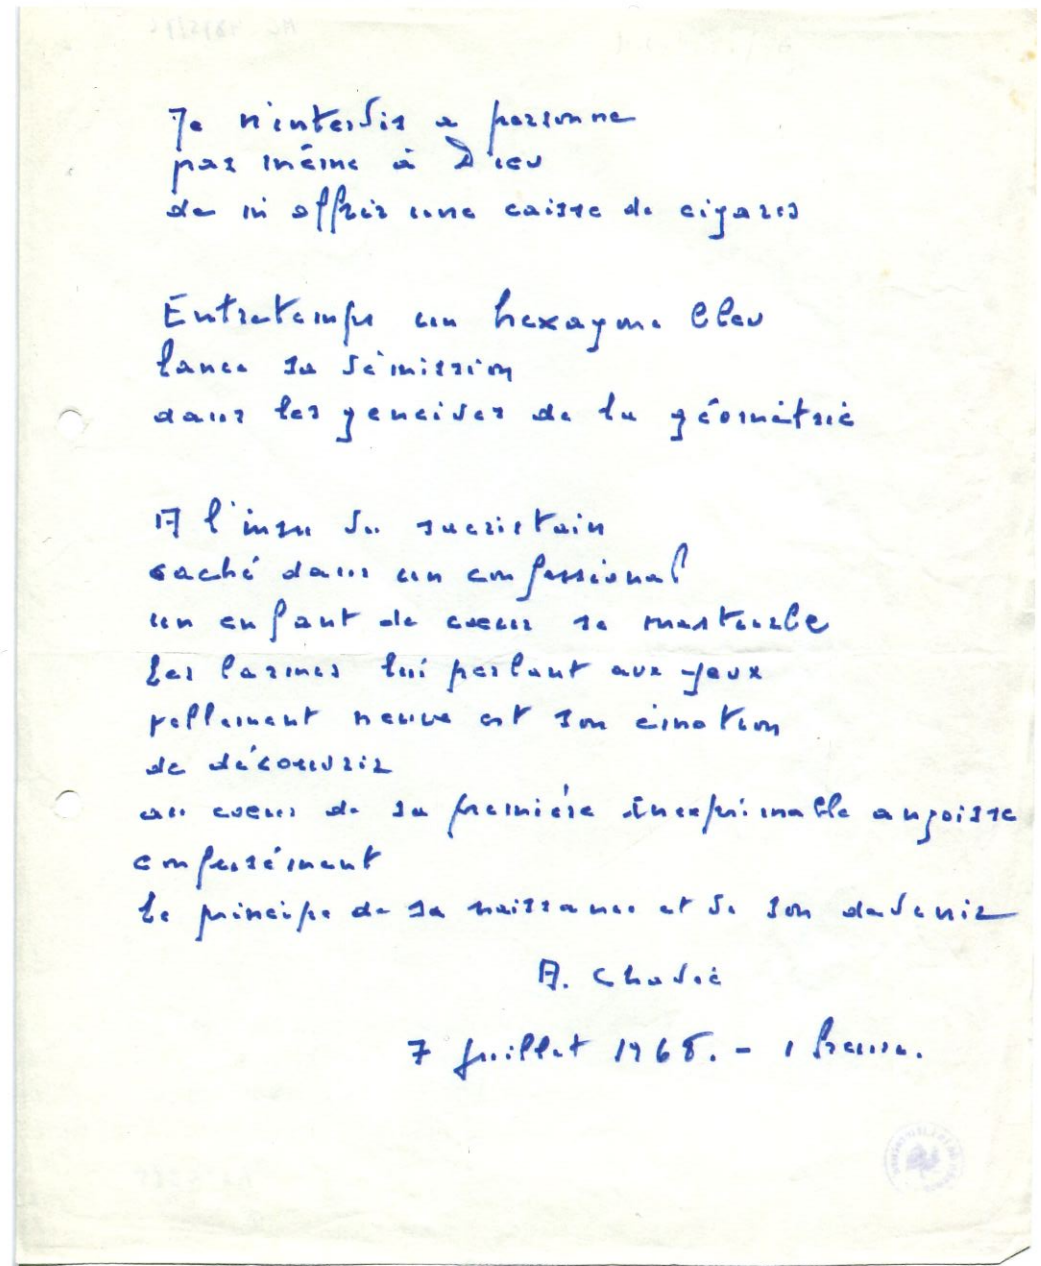 Je n'interdis à personne
pas même à Dieu
de m'offrir une caisse de cigares
Entretemps un hexagone bleu
lance sa démission
dans les gencives de la géométrie
A l'insu du sacristain
caché dans un confessional
un enfant de coeur se masturbe
Les larmes lui perlant aux yeux
tellement neuve est son émotion
de découvrir
au coeur de sa première inexprimable angoisse
confusément
le principe de sa naissance et de son devenir
A. Chavée
7 juillet 1968. - 1 heure.